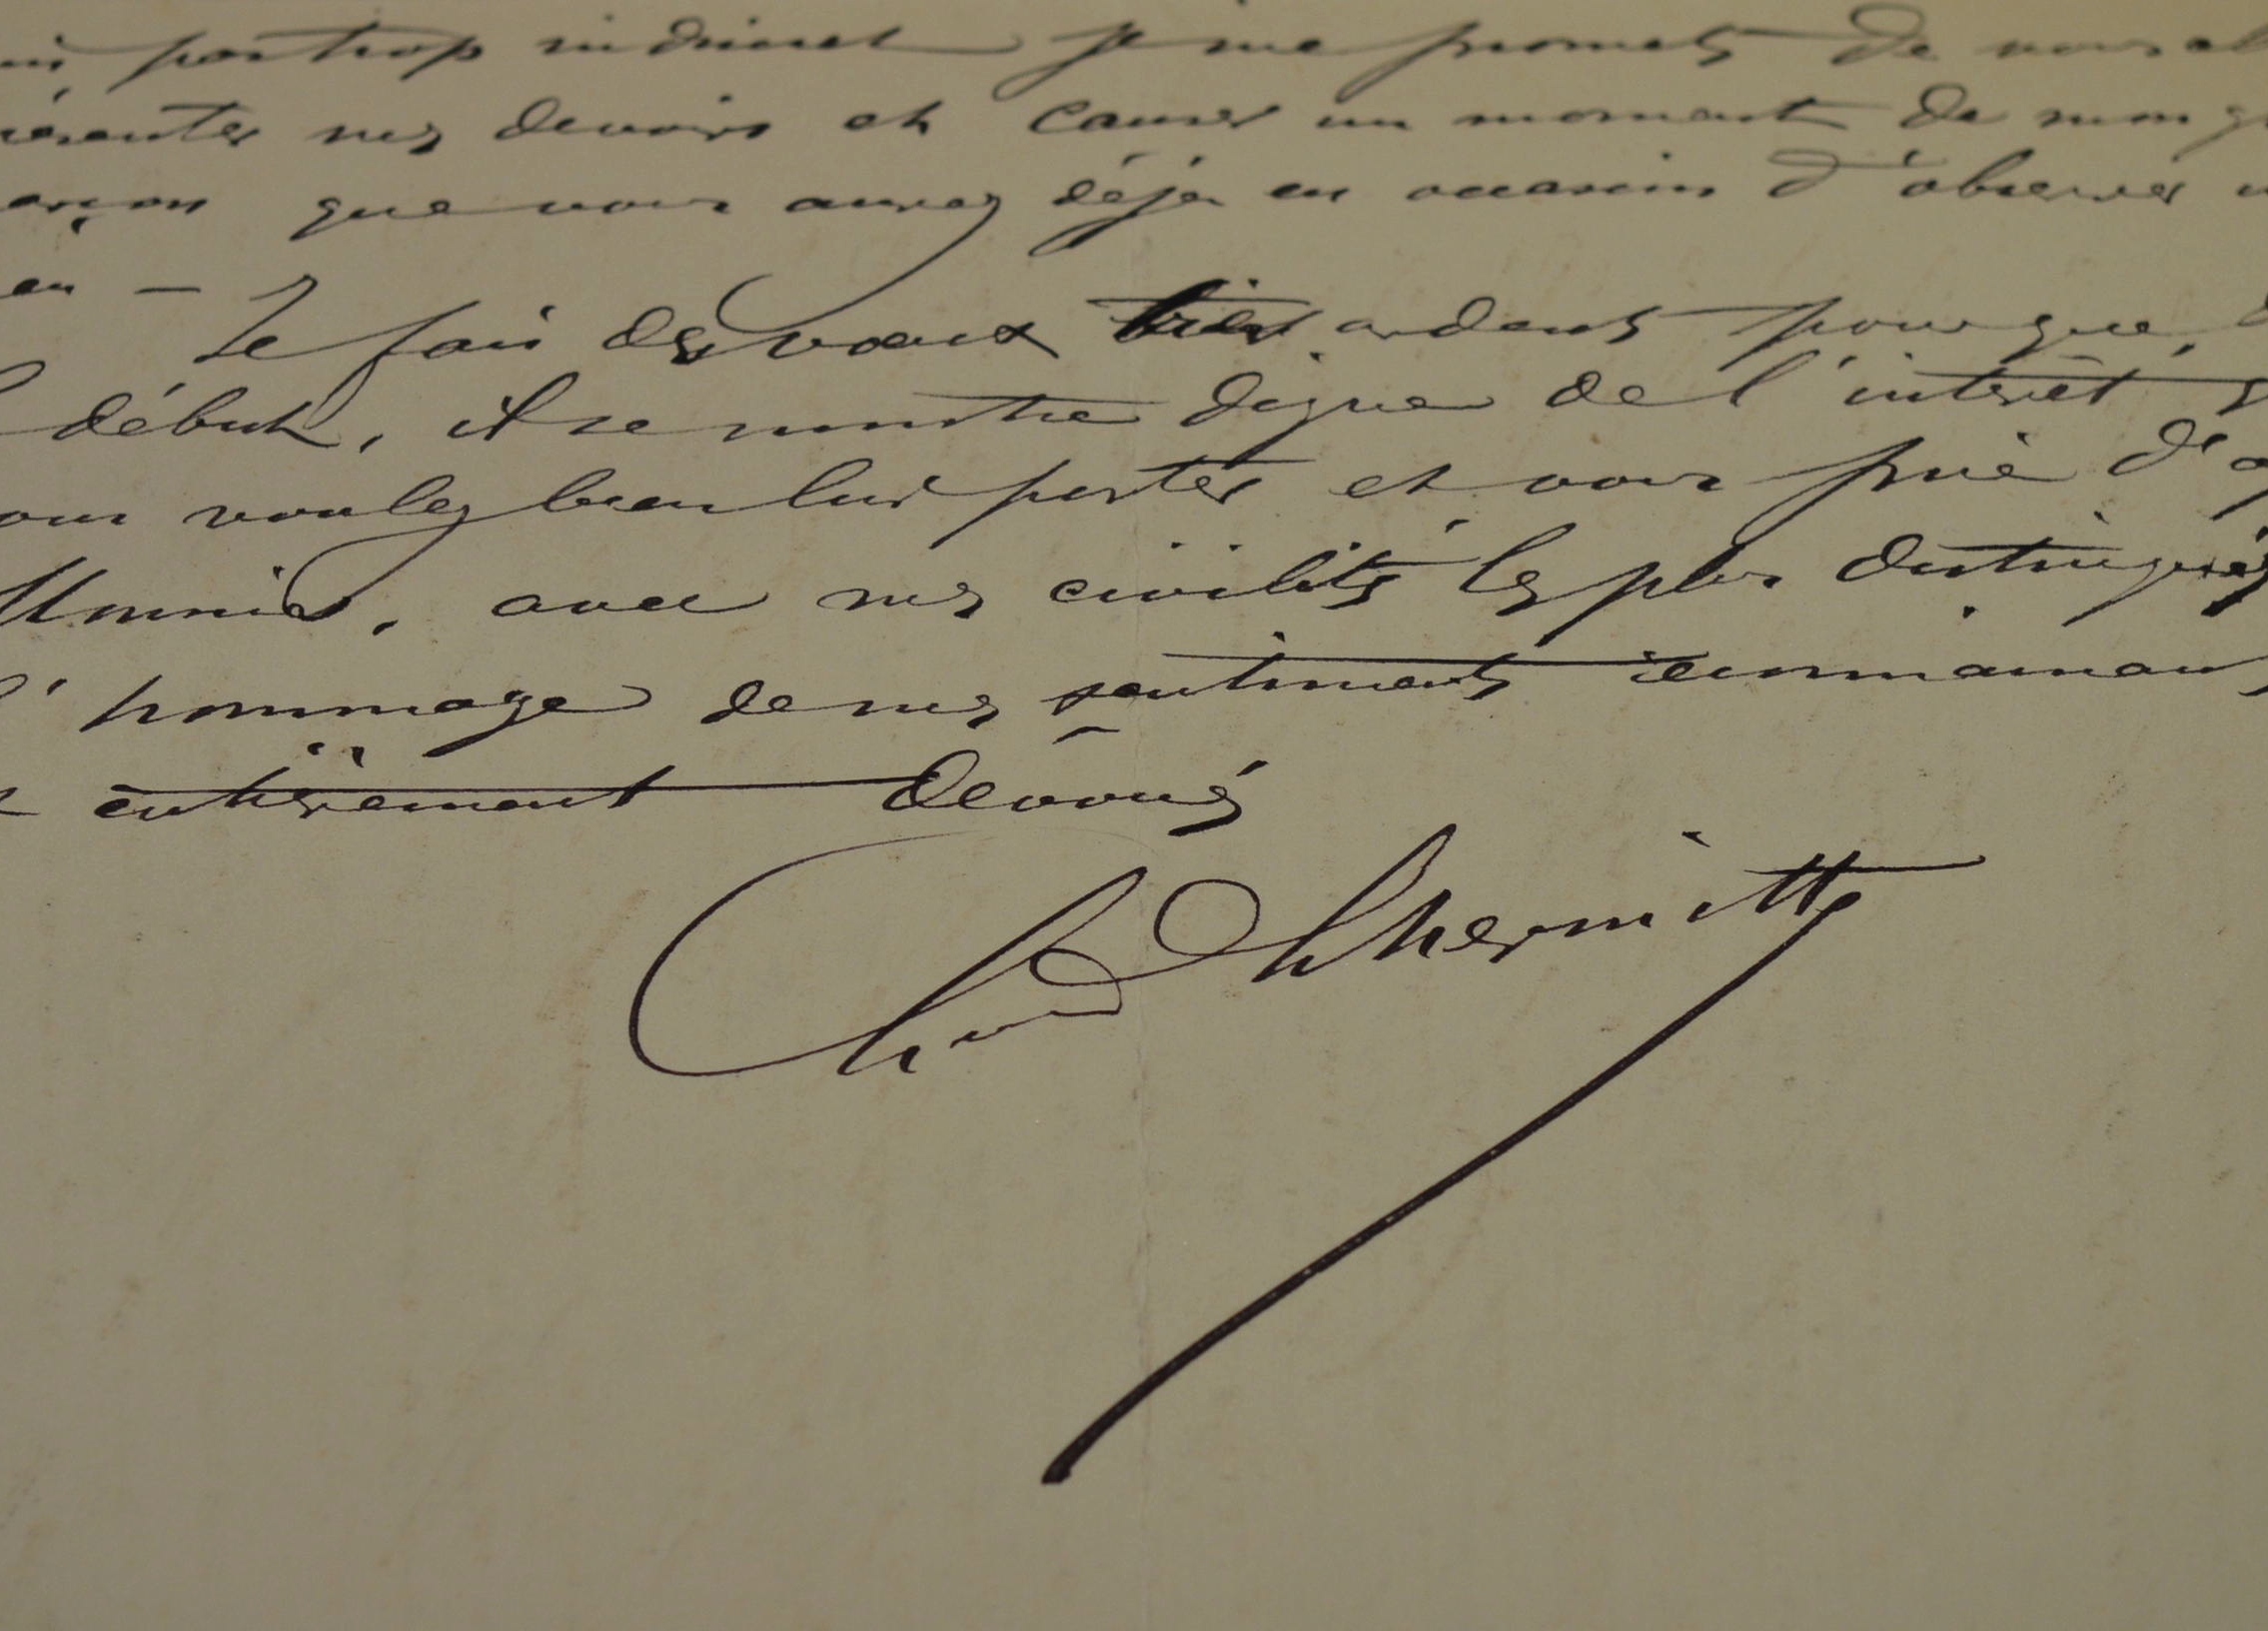 pas trop indiscret je me promets de vous
mes devoirs et causer un moment de mon
que vous aurez déjà eu occasion d'observer
— Je fais des vœux bien ardents pour que,
début, il se montre digne de l'intérêt
voulez bien lui porter et vous prie d'a
avec mes civilités les plus distinguées
l'hommage de mes sentiments reconnaissants
entièrement dévoués
Lhermitte